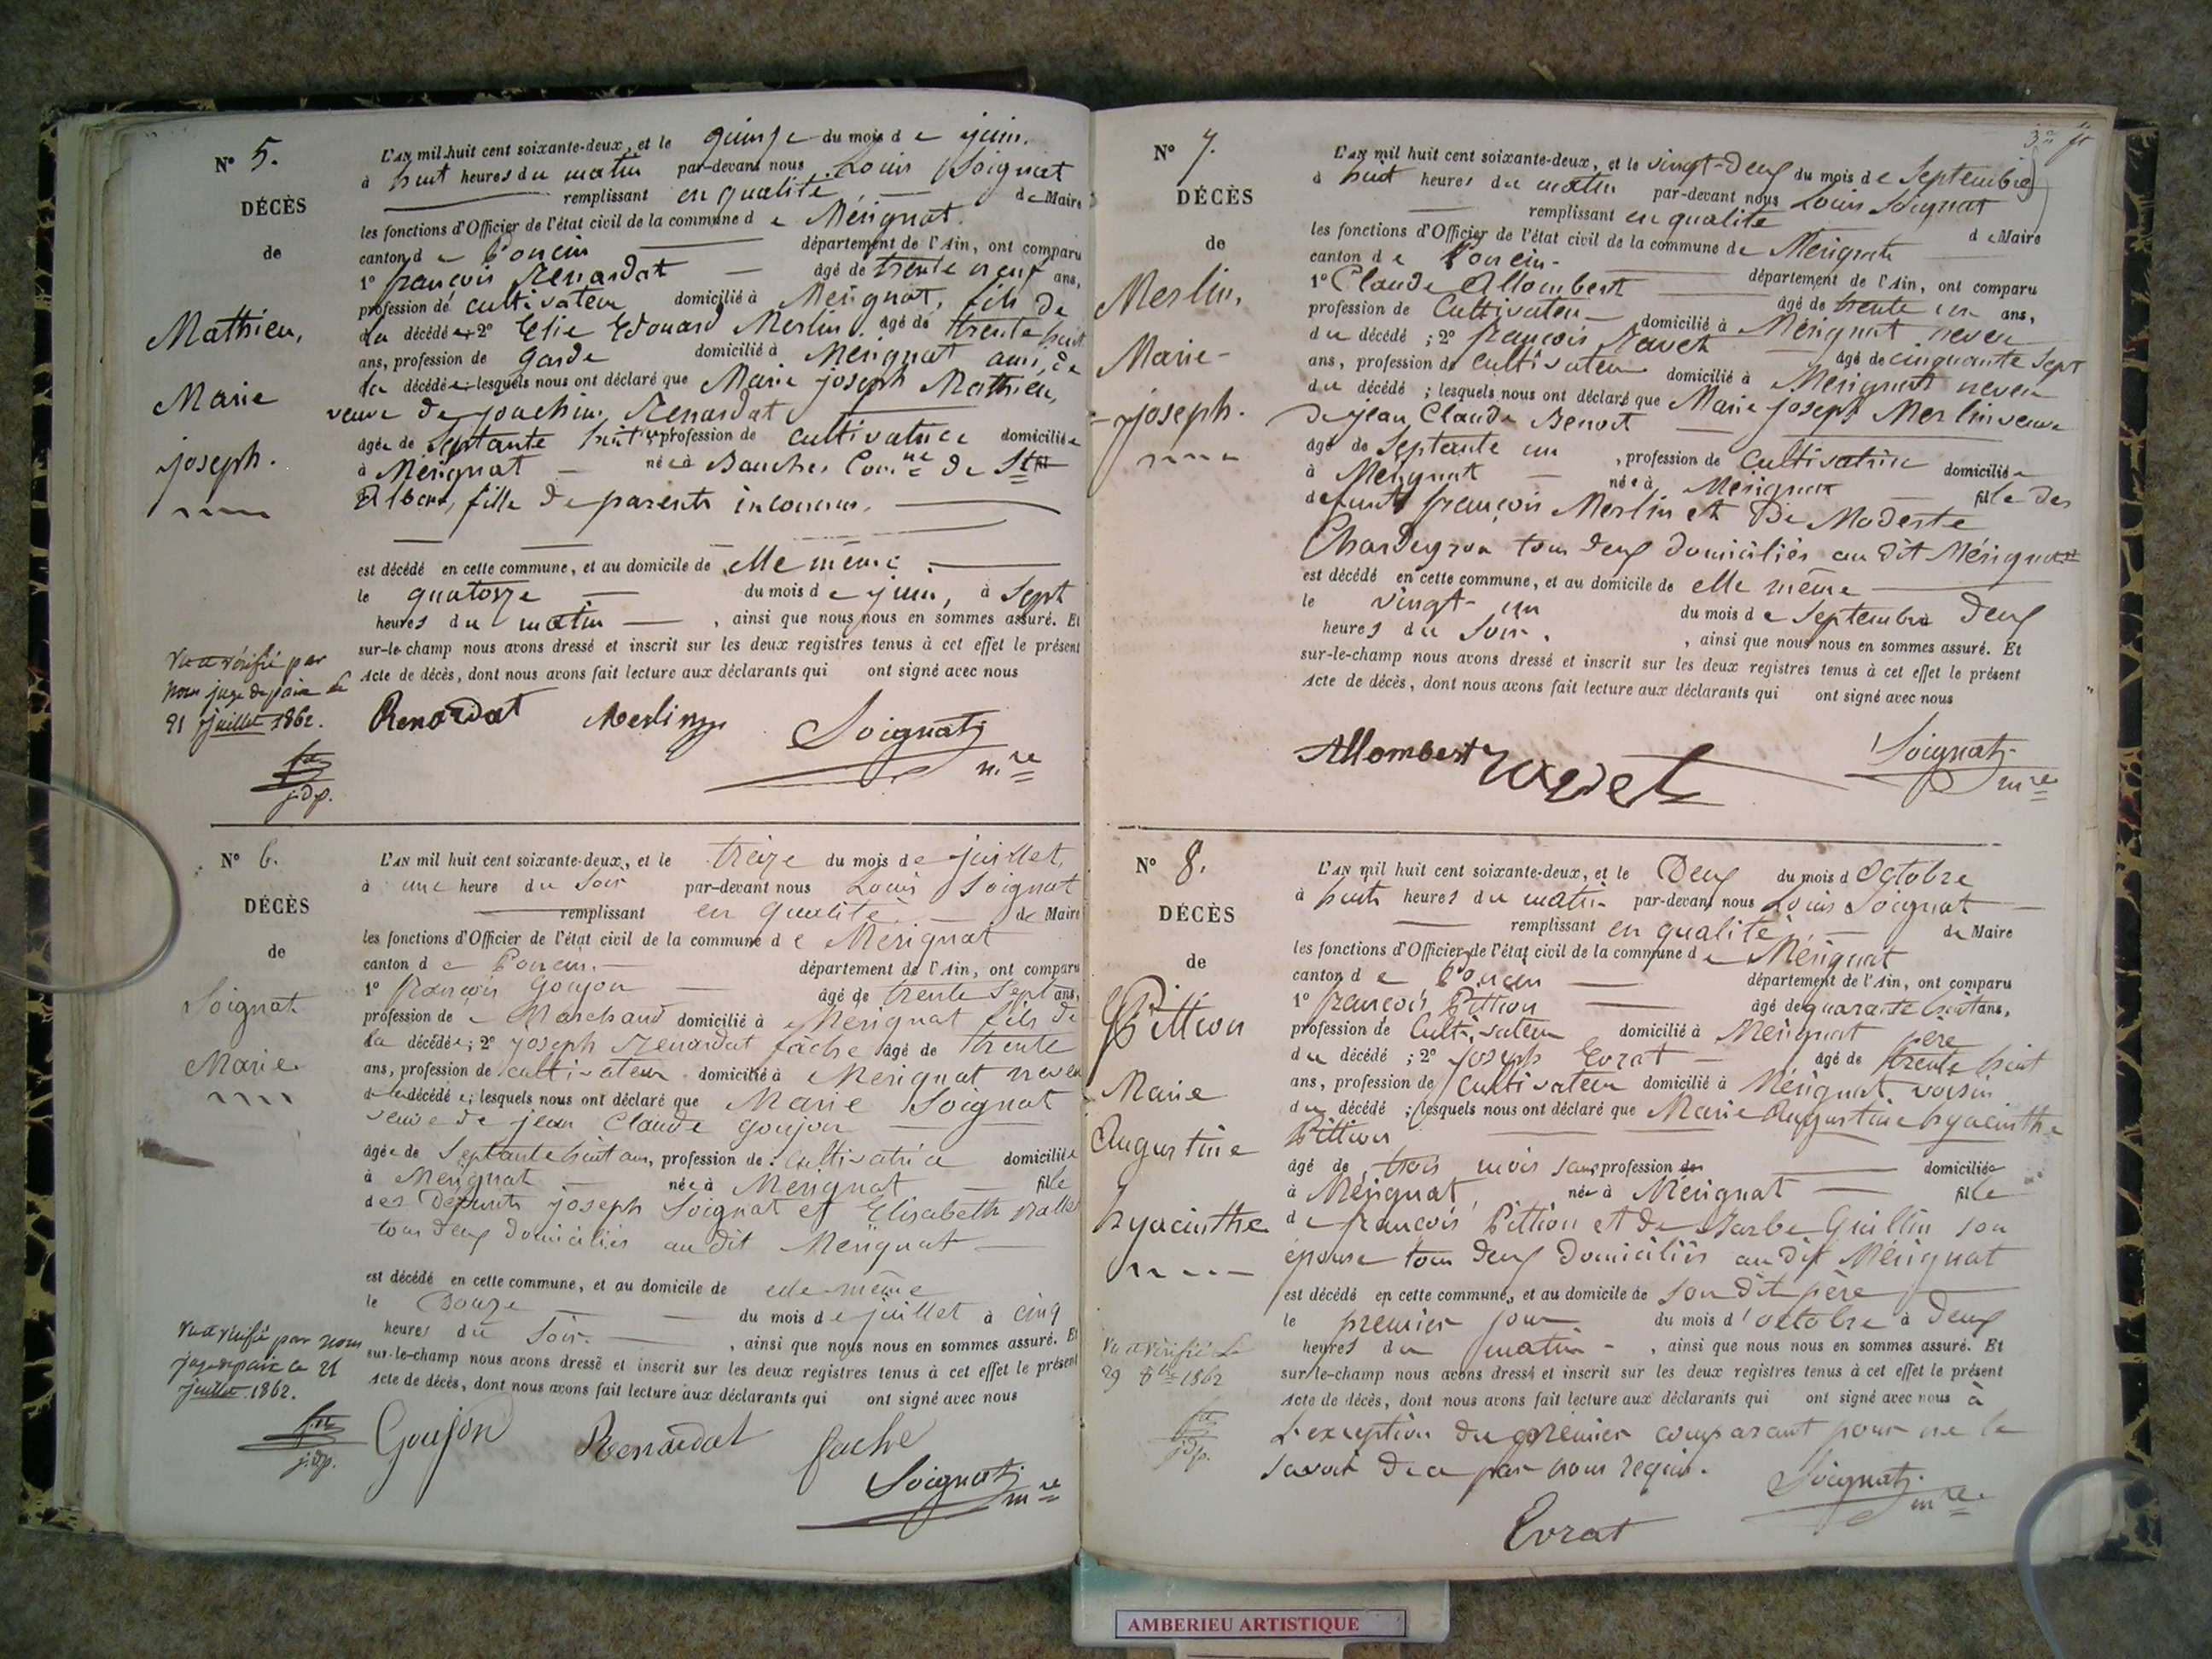 N° 5.
DÉCÈS
de
Mathieu,
Marie
joseph.
L'AN mil huit cent soixante-deux, et le quinze du mois de juin.
à huit heures du matin par-devant nous Louis Soignat
remplissant en qualité de Maire
les fonctions d'Officier de l'état civil de la commune de Mérignat.
canton de Poncin département de l'Ain, ont comparu
1° françois Renardat âgé de trente neuf ans,
profession de cultivateur domicilié à Mérignat, fils de
la décédée; 2° Elie Edouard Merlin âgé de trente huit
ans, profession de garde domicilié à Mérignat ami de
la décédée; lesquels nous ont déclaré que Marie joseph Mathieu,
veuve de joachim Renardat
âgée de septante huit profession de cultivatrice domiciliée
à Mérignat née à Bauches Com.ne de St
Alban, fille de parents inconnus.
est décédé en cette commune, et au domicile de elle même.
le quatorze du mois de juin, à sept
heures du matin, ainsi que nous nous en sommes assuré. Et
sur-le-champ nous avons dressé et inscrit sur les deux registres tenus à cet effet le présent
Acte de décès, dont nous avons fait lecture aux déclarants qui ont signé avec nous
Vu et vérifié par
nous juge de paix le
21 juillet 1862.
j.d.p.
Renardat Merlin Soignat
m.re
N° 6.
DÉCÈS
de
Soignat
Marie
L'AN mil huit cent soixante-deux, et le treize du mois de juillet,
à une heure du soir par-devant nous Louis Soignat
remplissant en qualité de Maire
les fonctions d'Officier de l'état civil de la commune de Mérignat
canton de Poncin. département de l'Ain, ont comparu
1° françois Goujon âgé de trente sept ans,
profession de Marchand domicilié à Mérignat fils de
la décédée; 2° joseph Renardat fâche âgé de trente
ans, profession de cultivateur domicilié à Mérignat neveu
de la décédée; lesquels nous ont déclaré que Marie Soignat
veuve de jean Claude goujon
âgée de septante huit ans, profession de cultivatrice domiciliée
à Mérignat née à Mérignat fille
des défunts joseph Soignat et Elisabeth
tous deux domiciliés au dit Mérignat
est décédé en cette commune, et au domicile de elle même
le Douze du mois de juillet à cinq
heures du soir. , ainsi que nous nous en sommes assuré. Et
sur-le-champ nous avons dressé et inscrit sur les deux registres tenus à cet effet le présent
Acte de décès, dont nous avons fait lecture aux déclarants qui ont signé avec nous
Vu et vérifié par nous
juge de paix le 21
juillet 1862.
j.d.p.
Goujon Renardat fache
Soignat
m.re
N° 7.
DÉCÈS
de
Merlin,
Marie-
joseph.
L'AN mil huit cent soixante-deux, et le vingt-deux du mois de Septembre
à huit heures du matin par-devant nous Louis Soignat
remplissant en qualité de Maire
les fonctions d'Officier de l'état civil de la commune de Mérignat
canton de Poncin. département de l'Ain, ont comparu
1° Claude Allombert âgé de trente un ans,
profession de Cultivateur domicilié à Mérignat neveu
du décédé; 2° françois Ravet âgé de cinquante sept
ans, profession de cultivateur domicilié à Mérignat neveu
du décédé; lesquels nous ont déclaré que Marie joseph Merlin veuve
de jean Claude Benoit
âgé de septante un, profession de Cultivatrice domiciliée
à Mérignat née à Mérignat fille des
défunts françois Merlin et De Modeste
Chardeyron tous deux domiciliés au dit Mérignat
est décédé en cette commune, et au domicile de elle même
le vingt-un du mois de Septembre deux
heures du soir. , ainsi que nous nous en sommes assuré. Et
sur-le-champ nous avons dressé et inscrit sur les deux registres tenus à cet effet le présent
Acte de décès, dont nous avons fait lecture aux déclarants qui ont signé avec nous
Allombert Ravet Soignat
m.re
N° 8.
DÉCÈS
de
Pittion
Marie
Augustine
hyacinthe
L'AN mil huit cent soixante-deux, et le Deux du mois d'Octobre
à huit heures du matin par-devant nous Louis Soignat
remplissant en qualité de Maire
les fonctions d'Officier de l'état civil de la commune de Mérignat
canton de Poncin département de l'Ain, ont comparu
1° françois Pittion âgé de quarante huit ans,
profession de Cultivateur domicilié à Mérignat père
du décédé; 2° joseph Evrat âgé de trente huit
ans, profession de Cultivateur domicilié à Mérignat voisin
du décédé; lesquels nous ont déclaré que Marie Augustine hyacinthe
Pittion
âgé de trois mois sans profession de domiciliée
à Mérignat, née à Mérignat fille
de françois Pittion et de Barbe Guillin son
épouse tous deux domiciliés au dit Mérignat
est décédé en cette commune, et au domicile de son dit père
le premier jour du mois d'octobre à deux
heures du matin, ainsi que nous nous en sommes assuré. Et
sur-le-champ nous avons dressé et inscrit sur les deux registres tenus à cet effet le présent
Acte de décès, dont nous avons fait lecture aux déclarants qui ont signé avec nous à
L'exception du premier comparant pour ne le
savoir de ce par nous requis.
Vu et vérifié le
29 8bre 1862
j.d.p.
Soignat
m.re
Evrat
AMBERIEU ARTISTIQUE